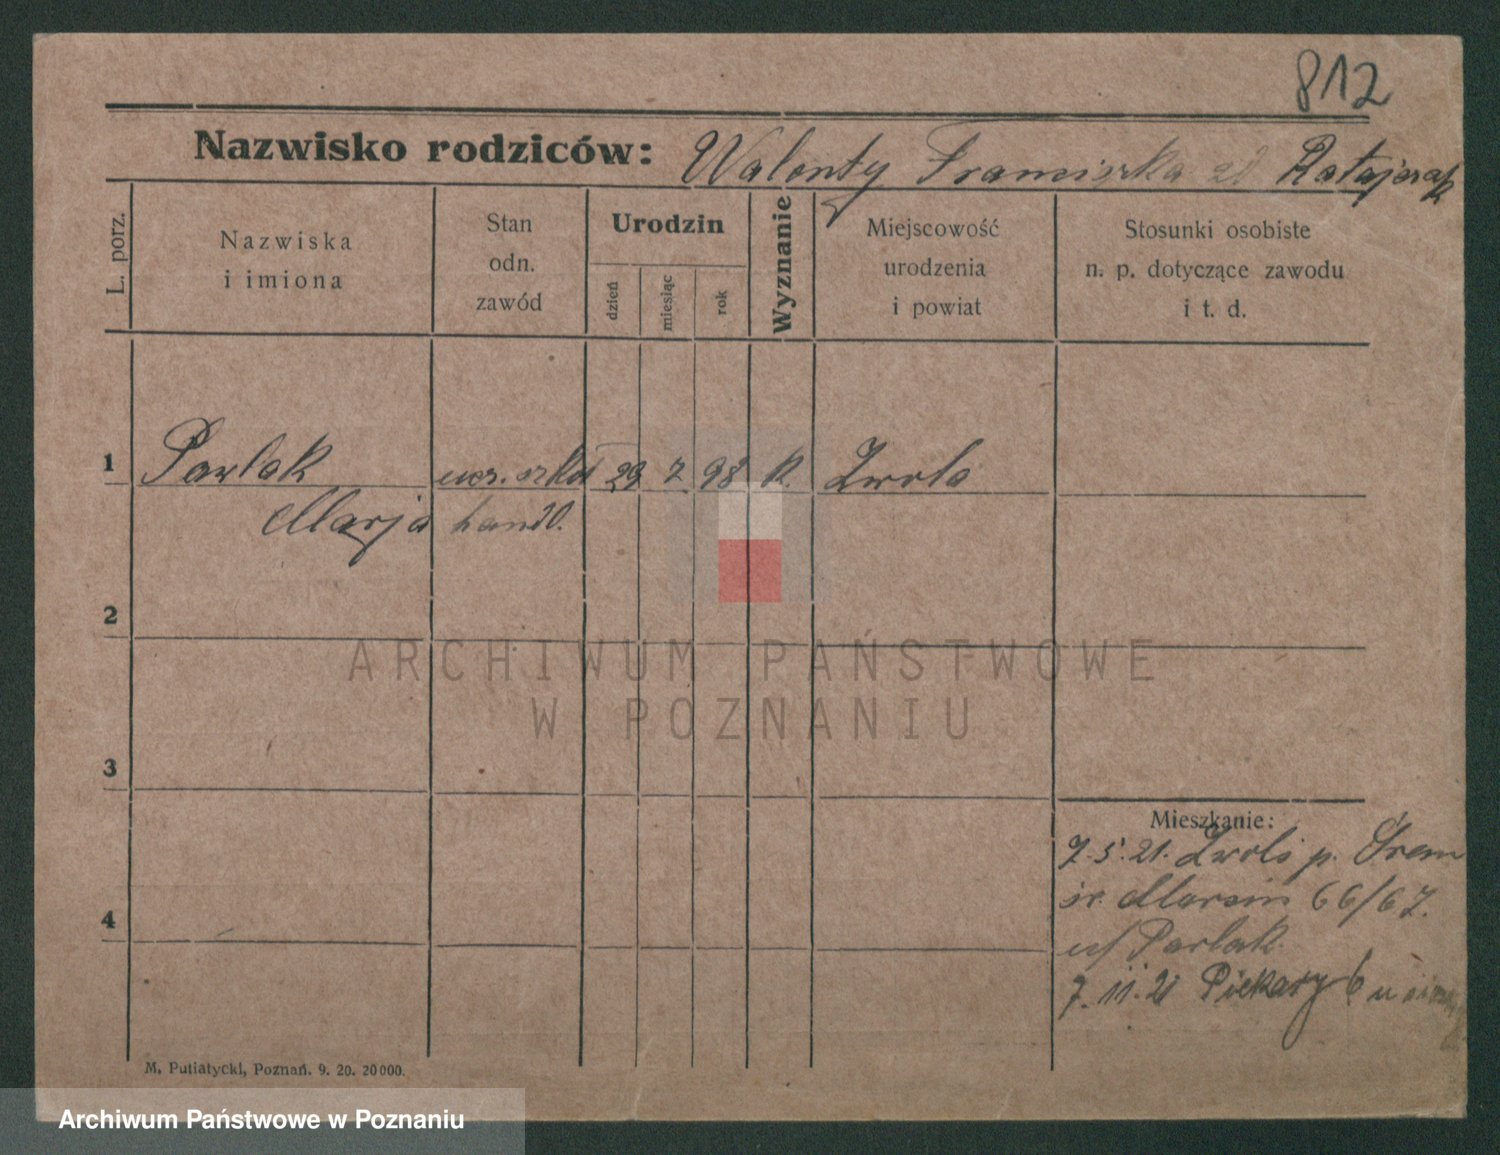 812
Nazwisko rodziców: Walenty Franciszka zd Ratajczak
L. porz.
Nazwiska
i imiona
Stan
odn.
zawód
Urodzin
dzień
miesiąc
rok
Wyznanie
Miejscowość
urodzenia
i powiat
Stosunki osobiste
n. p. dotyczące zawodu
i t. d.
1 Pawlak ucz. szkoł 29 7 98 k. Zwola
Marja handl.
2
3
4
ARCHIWUM PAŃSTWOWE
W POZNANIU
Mieszkanie:
7.5.21. Zwola p. Śrem
św. Marcin 66/67.
u/ Pawlak
7.11.21 Piekary 6 u
M. Putiatycki, Poznań. 9. 20. 20000.
Archiwum Państwowe w Poznaniu